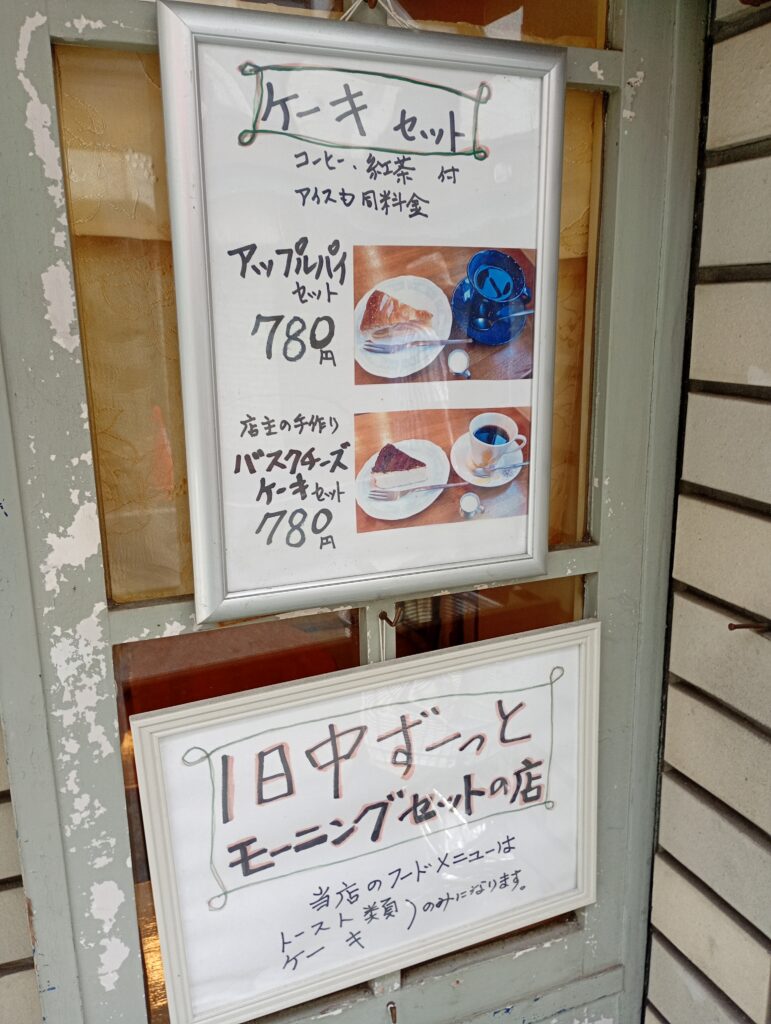 ケーキ セット
コーヒー、紅茶 付
アイスも同料金
アップルパイ
セット
780円
店主の手作り
バスクチーズ
ケーキセット
780円
1日中ずーっと
モーニングセットの店
当店のフードメニューは
トースト類
ケーキ
)のみになります。